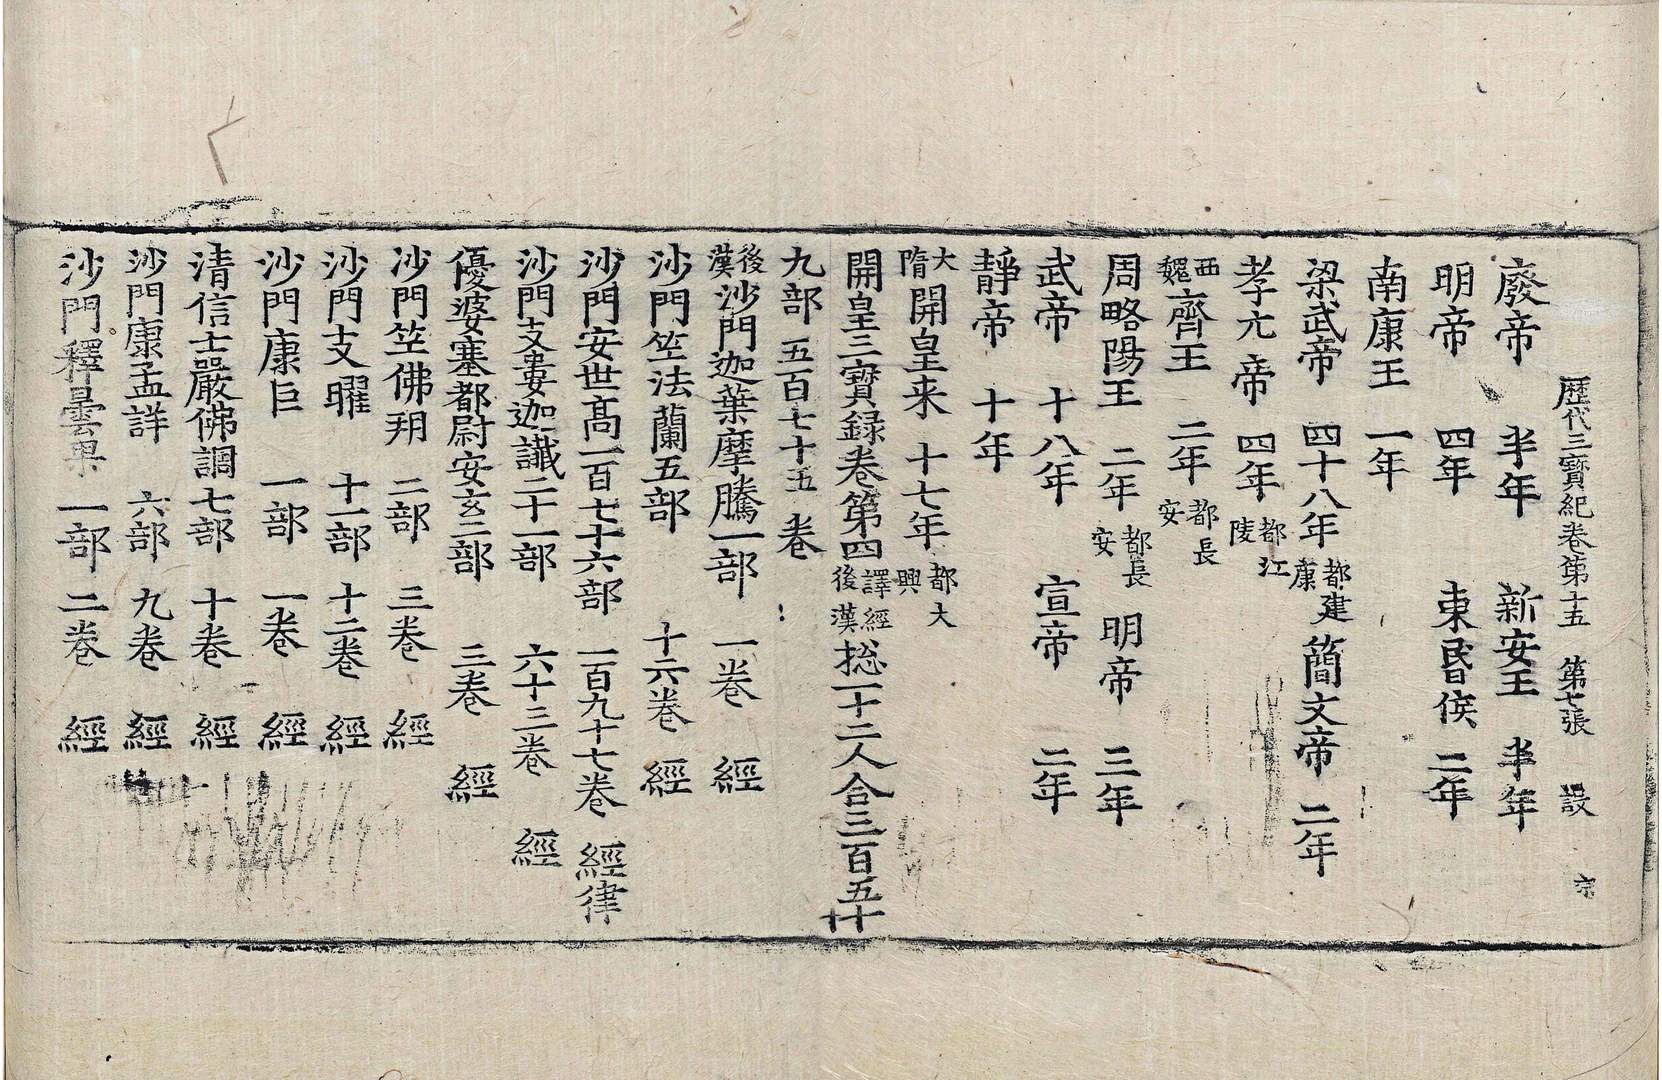 歴代三寳紀卷第十五 第七張 設 宗
廢帝 半年 新安王 半年
明帝 四年 東昬侯 二年
南康王 一年
梁武帝 四十八年 都建康 簡文帝 二年
孝元帝 四年 都江陵
西魏齊王 二年 都長安
周略陽王 二年 都長安 明帝 三年
武帝 十八年 宣帝 二年
靜帝 十年
大隋開皇来 十七年 都大興
開皇三寳録卷第四 譯經後漢 捴一十二人合三百五十
九部 五百七十五卷
後漢沙門迦葉摩騰一部 一卷 經
沙門竺法蘭五部 十六卷 經
沙門安世髙一百七十六部 一百九十七卷 經律
沙門支婁迦讖二十一部 六十三卷 經
優婆塞都尉安玄二部 三卷 經
沙門竺佛朔 二部 三卷 經
沙門支曜 十一部 十二卷 經
沙門康巨 一部 一卷 經
清信士嚴佛調七部 十卷 經
沙門康孟詳 六部 九卷 經
沙門釋曇果 一部 二卷 經